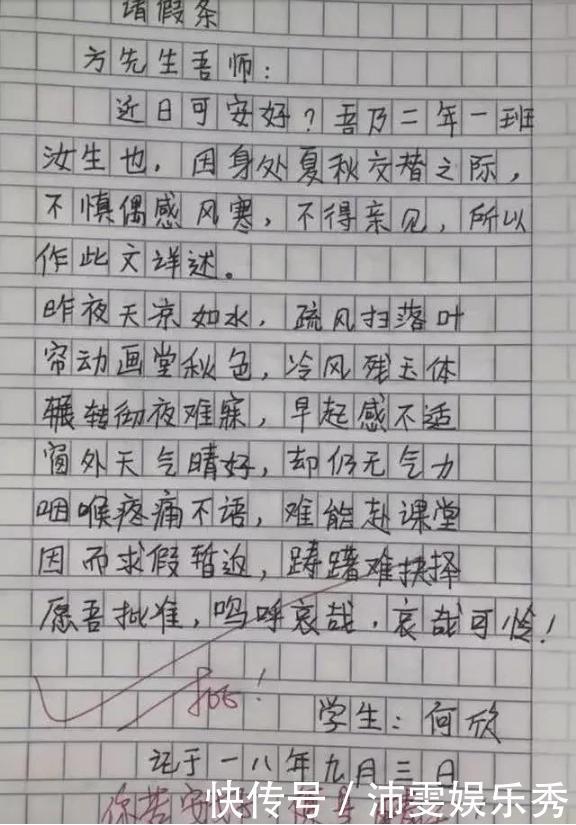 请假条
方先生吾师：
近日可安好？吾乃二年一班
汝生也，因身处夏秋交替之际，
不慎偶感风寒，不得亲见，所以
作此文详述。
昨夜天凉如水，疏风扫落叶
帘动画堂秋色，冷风残玉体
辗转彻夜难寐，早起感不适
窗外天气晴好，却仍无气力
咽喉疼痛不语，难能赴课堂
因而求假暂返，踌躇难抉择
愿吾批准，呜呼哀哉，哀哉可怜！
批！
学生：何欣
记于一八年九月三日
你若安好
快传号/沛雯娱乐秀